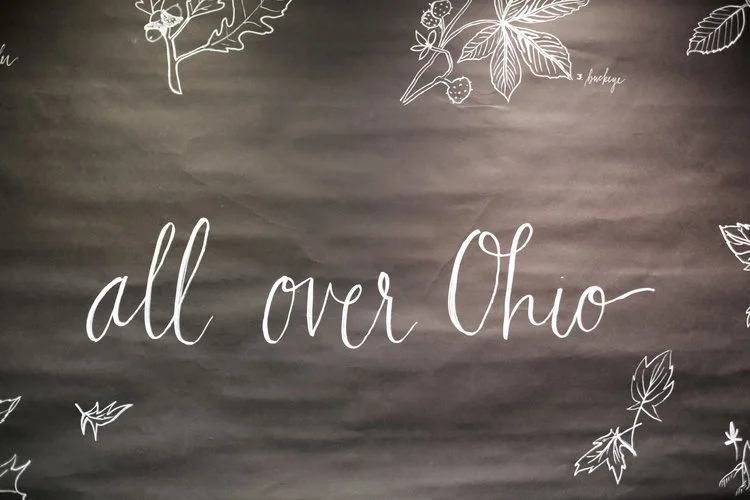 3. buckeye
all over Ohio